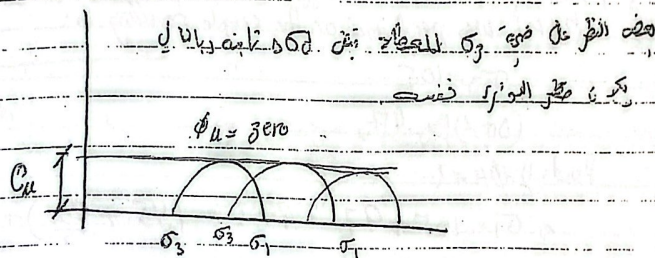 بغض النظر عن قيمة σ3 المعطاه تبقى σd ثابته وبالتالي
يكون قطر الدوائر نفسه
ϕu = zero
Cu
σ3 σ3 σ1 σ1